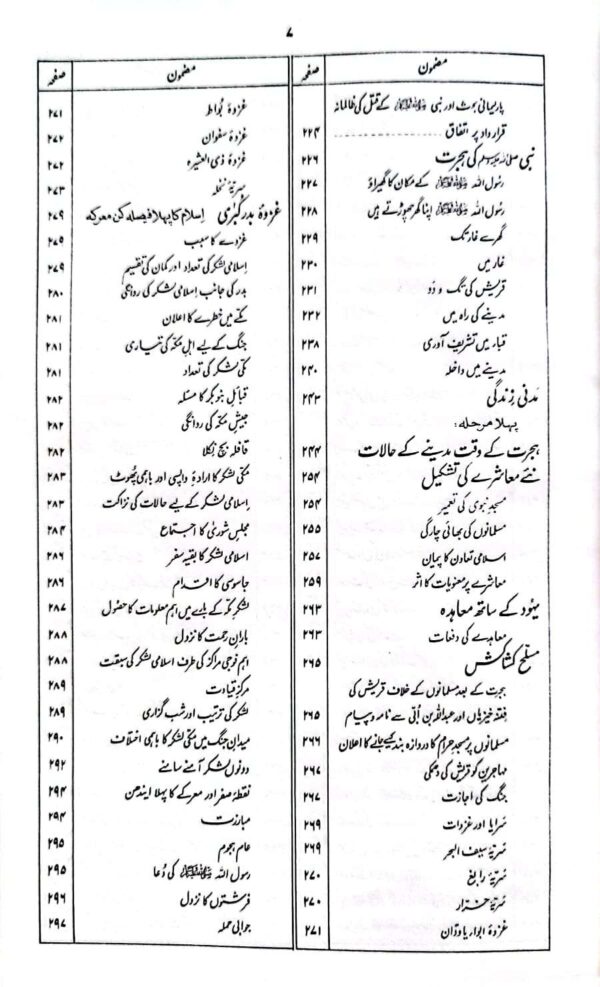 ۷
مضمون صفحہ
پارلیمانی بحث اور نبی ﷺ کے قتل کی ظالمانہ
قرارداد پر اتفاق ۲۲۴
نبی ﷺ کی ہجرت ۲۲۶
رسول اللہ ﷺ کے مکان کا گھیراؤ ۲۲۷
رسول اللہ ﷺ اپنا گھر چھوڑتے ہیں ۲۲۸
گھر سے غار تک ۲۲۹
غار میں ۲۳۰
قریش کی تگ و دَو ۲۳۱
مدینے کی راہ میں ۲۳۲
قبار میں تشریف آوری ۲۳۸
مدینے میں داخلہ ۲۴۰
مَدنی زِندگی ۲۴۳
پہلا مرحلہ:
ہجرت کے وقت مدینے کے حالات ۲۴۴
نئے معاشرے کی تشکیل ۲۵۴
مسجد نبوی کی تعمیر ۲۵۴
مسلمانوں کی بھائی چارگی ۲۵۵
اسلامی تعاون کا پیمان ۲۵۷
معاشرے پر معنویات کا اثر ۲۵۹
یہود کے ساتھ معاہدہ ۲۶۳
معاہدے کی دفعات ۲۶۳
مسلح کشاکش ۲۶۵
ہجرت کے بعد مسلمانوں کے خلاف قریش کی
فتنہ خیزیاں اور عبداللہ بن اُبی سے نامہ و پیام ۲۶۵
مسلمانوں پر مسجد حرام کا دروازہ بند کیے جانے کا اعلان ۲۶۶
مہاجرین کو قریش کی دھمکی ۲۶۷
جنگ کی اجازت ۲۶۷
سَرایا اور غزوات ۲۶۹
سَریّۂ سیف البحر ۲۶۹
سَریّۂ رابغ ۲۷۰
سَریّۂ خرّار ۲۷۰
غزوۂ ابوار یا ودّان ۲۷۱
مضمون صفحہ
غزوۂ بُواط ۲۷۱
غزوۂ سفوان ۲۷۲
غزوۂ ذی العشیرہ ۲۷۲
سریّۂ نخلہ ۲۷۳
غزوۂ بدر کُبریٰ اِسلام کا پہلا فیصلہ کن معرکہ ۲۷۹
غزوے کا سبب ۲۷۹
اسلامی لشکر کی تعداد اور کمان کی تقسیم ۲۷۹
بدر کی جانب اِسلامی لشکر کی روانگی ۲۸۰
مکّے میں خطرے کا اعلان ۲۸۱
جنگ کے لیے اہلِ مکّہ کی تیاری ۲۸۱
مکّی لشکر کی تعداد ۲۸۱
قبائل بنو بکر کا مسئلہ ۲۸۲
جیشِ مکّہ کی روانگی ۲۸۲
قافلہ بچ نِکلا ۲۸۲
مکّی لشکر کا ارادۂ واپسی اور باہمی پھوٹ ۲۸۳
اِسلامی لشکر کے لیے حالات کی نزاکت ۲۸۳
مجلس شوریٰ کا اجتماع ۲۸۴
اسلامی لشکر کا بقیہ سفر ۲۸۶
جاسوسی کا اقدام ۲۸۶
لشکرِ مکّہ کے بارے میں اہم معلومات کا حصُول ۲۸۷
بارانِ رحمت کا نزول ۲۸۸
اہم فوجی مراکز کی طرف اسلامی لشکر کی سبقت ۲۸۸
مرکزِ قیادت ۲۸۹
لشکر کی ترتیب اور شب گزاری ۲۸۹
میدانِ جنگ میں مکّی لشکر کا باہمی اختلاف ۲۹۰
دونوں لشکر آمنے سامنے ۲۹۲
نقطۂ صفر اور معرکے کا پہلا ایندھن ۲۹۴
مبارزت ۲۹۴
عام ہجوم ۲۹۵
رسول اللہ ﷺ کی دُعا ۲۹۵
فرشتوں کا نزول ۲۹۶
جوابی حملہ ۲۹۷